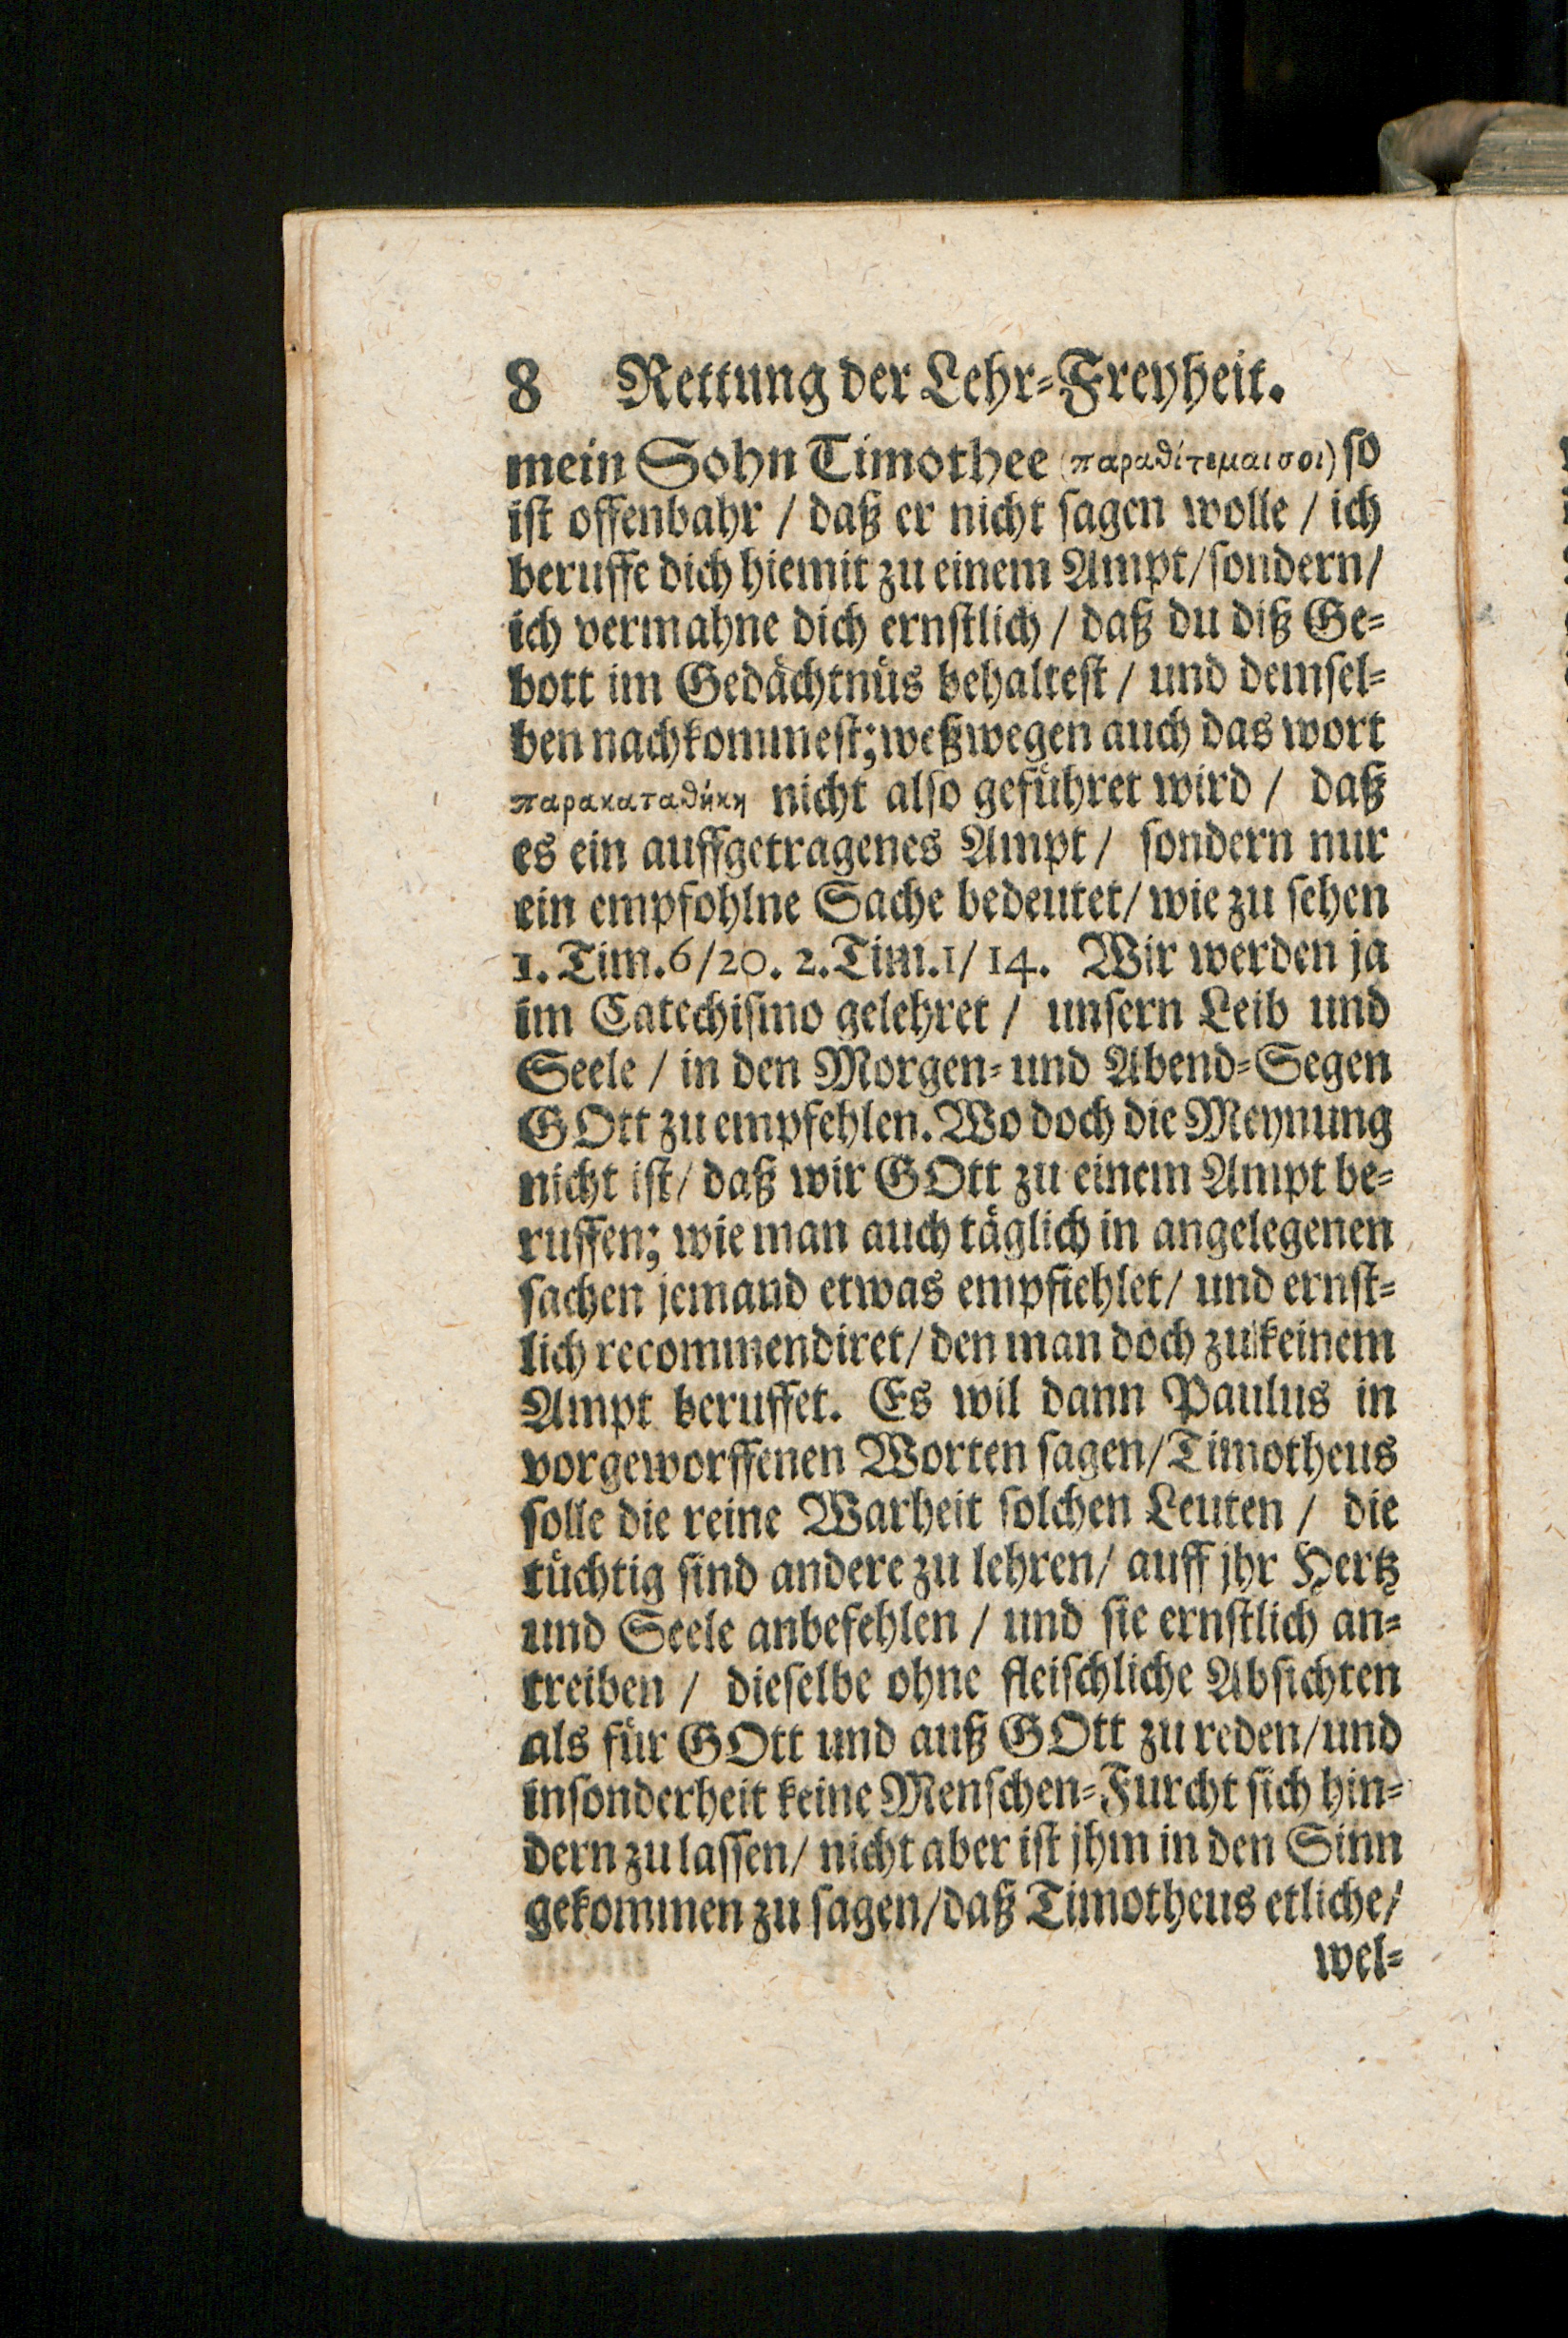 8 Rettung der Lehr-Freyheit.
mein Sohn Timothee (παραθίτεμαισοι) so
ist offenbahr / daß er nicht sagen wolle / ich
beruffe dich hiemit zu einem Ampt/sondern/
ich vermahne dich ernstlich / daß du diß Ge-
bott im Gedächtnüs behaltest / und demsel-
ben nachkommest; weßwegen auch das wort
παρακαταθήκη nicht also geführet wird / daß
es ein auffgetragenes Ampt / sondern nur
ein empfohlne Sache bedeutet/ wie zu sehen
1. Tim.6/20. 2. Tim.1/14. Wir werden ja
im Catechismo gelehret / unsern Leib und
Seele / in den Morgen- und Abend-Segen
GOtt zu empfehlen. Wo doch die Meynung
nicht ist/ daß wir GOtt zu einem Ampt be-
ruffen; wie man auch täglich in angelegenen
sachen jemand etwas empfiehlet/ und ernst-
lich recommendiret/ den man doch zu keinem
Ampt beruffet. Es wil dann Paulus in
vorgeworffenen Worten sagen/Timotheus
solle die reine Warheit solchen Leuten / die
tüchtig sind andere zu lehren/ auff jhr Hertz
und Seele anbefehlen / und sie ernstlich an-
treiben / dieselbe ohne fleischliche Absichten
als für GOtt und auß GOtt zu reden/und
insonderheit keine Menschen-Furcht sich hin-
dern zu lassen/ nicht aber ist jhm in den Sinn
gekommen zu sagen/daß Timotheus etliche/
wel-